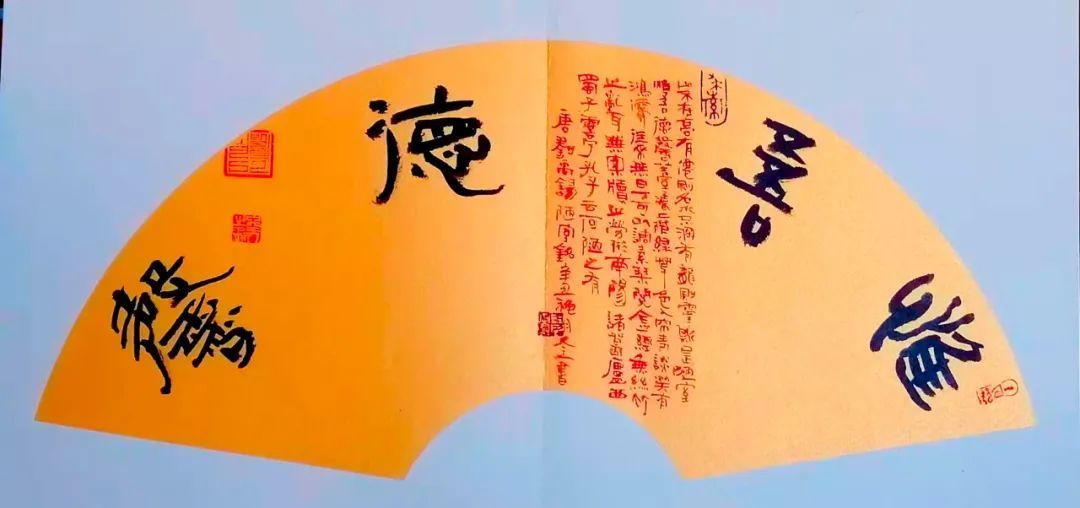 惟
吾
德
馨
山不在高有仙則名水不深有龍則靈斯是陋室
惟吾德馨苔痕上階綠草色入簾青談笑有
鴻儒往來無白丁可以調素琴閱金經無絲竹
之亂耳無案牘之勞形南陽諸葛廬西
蜀子雲亭孔子云何陋之有
唐劉禹錫陋室銘辛丑